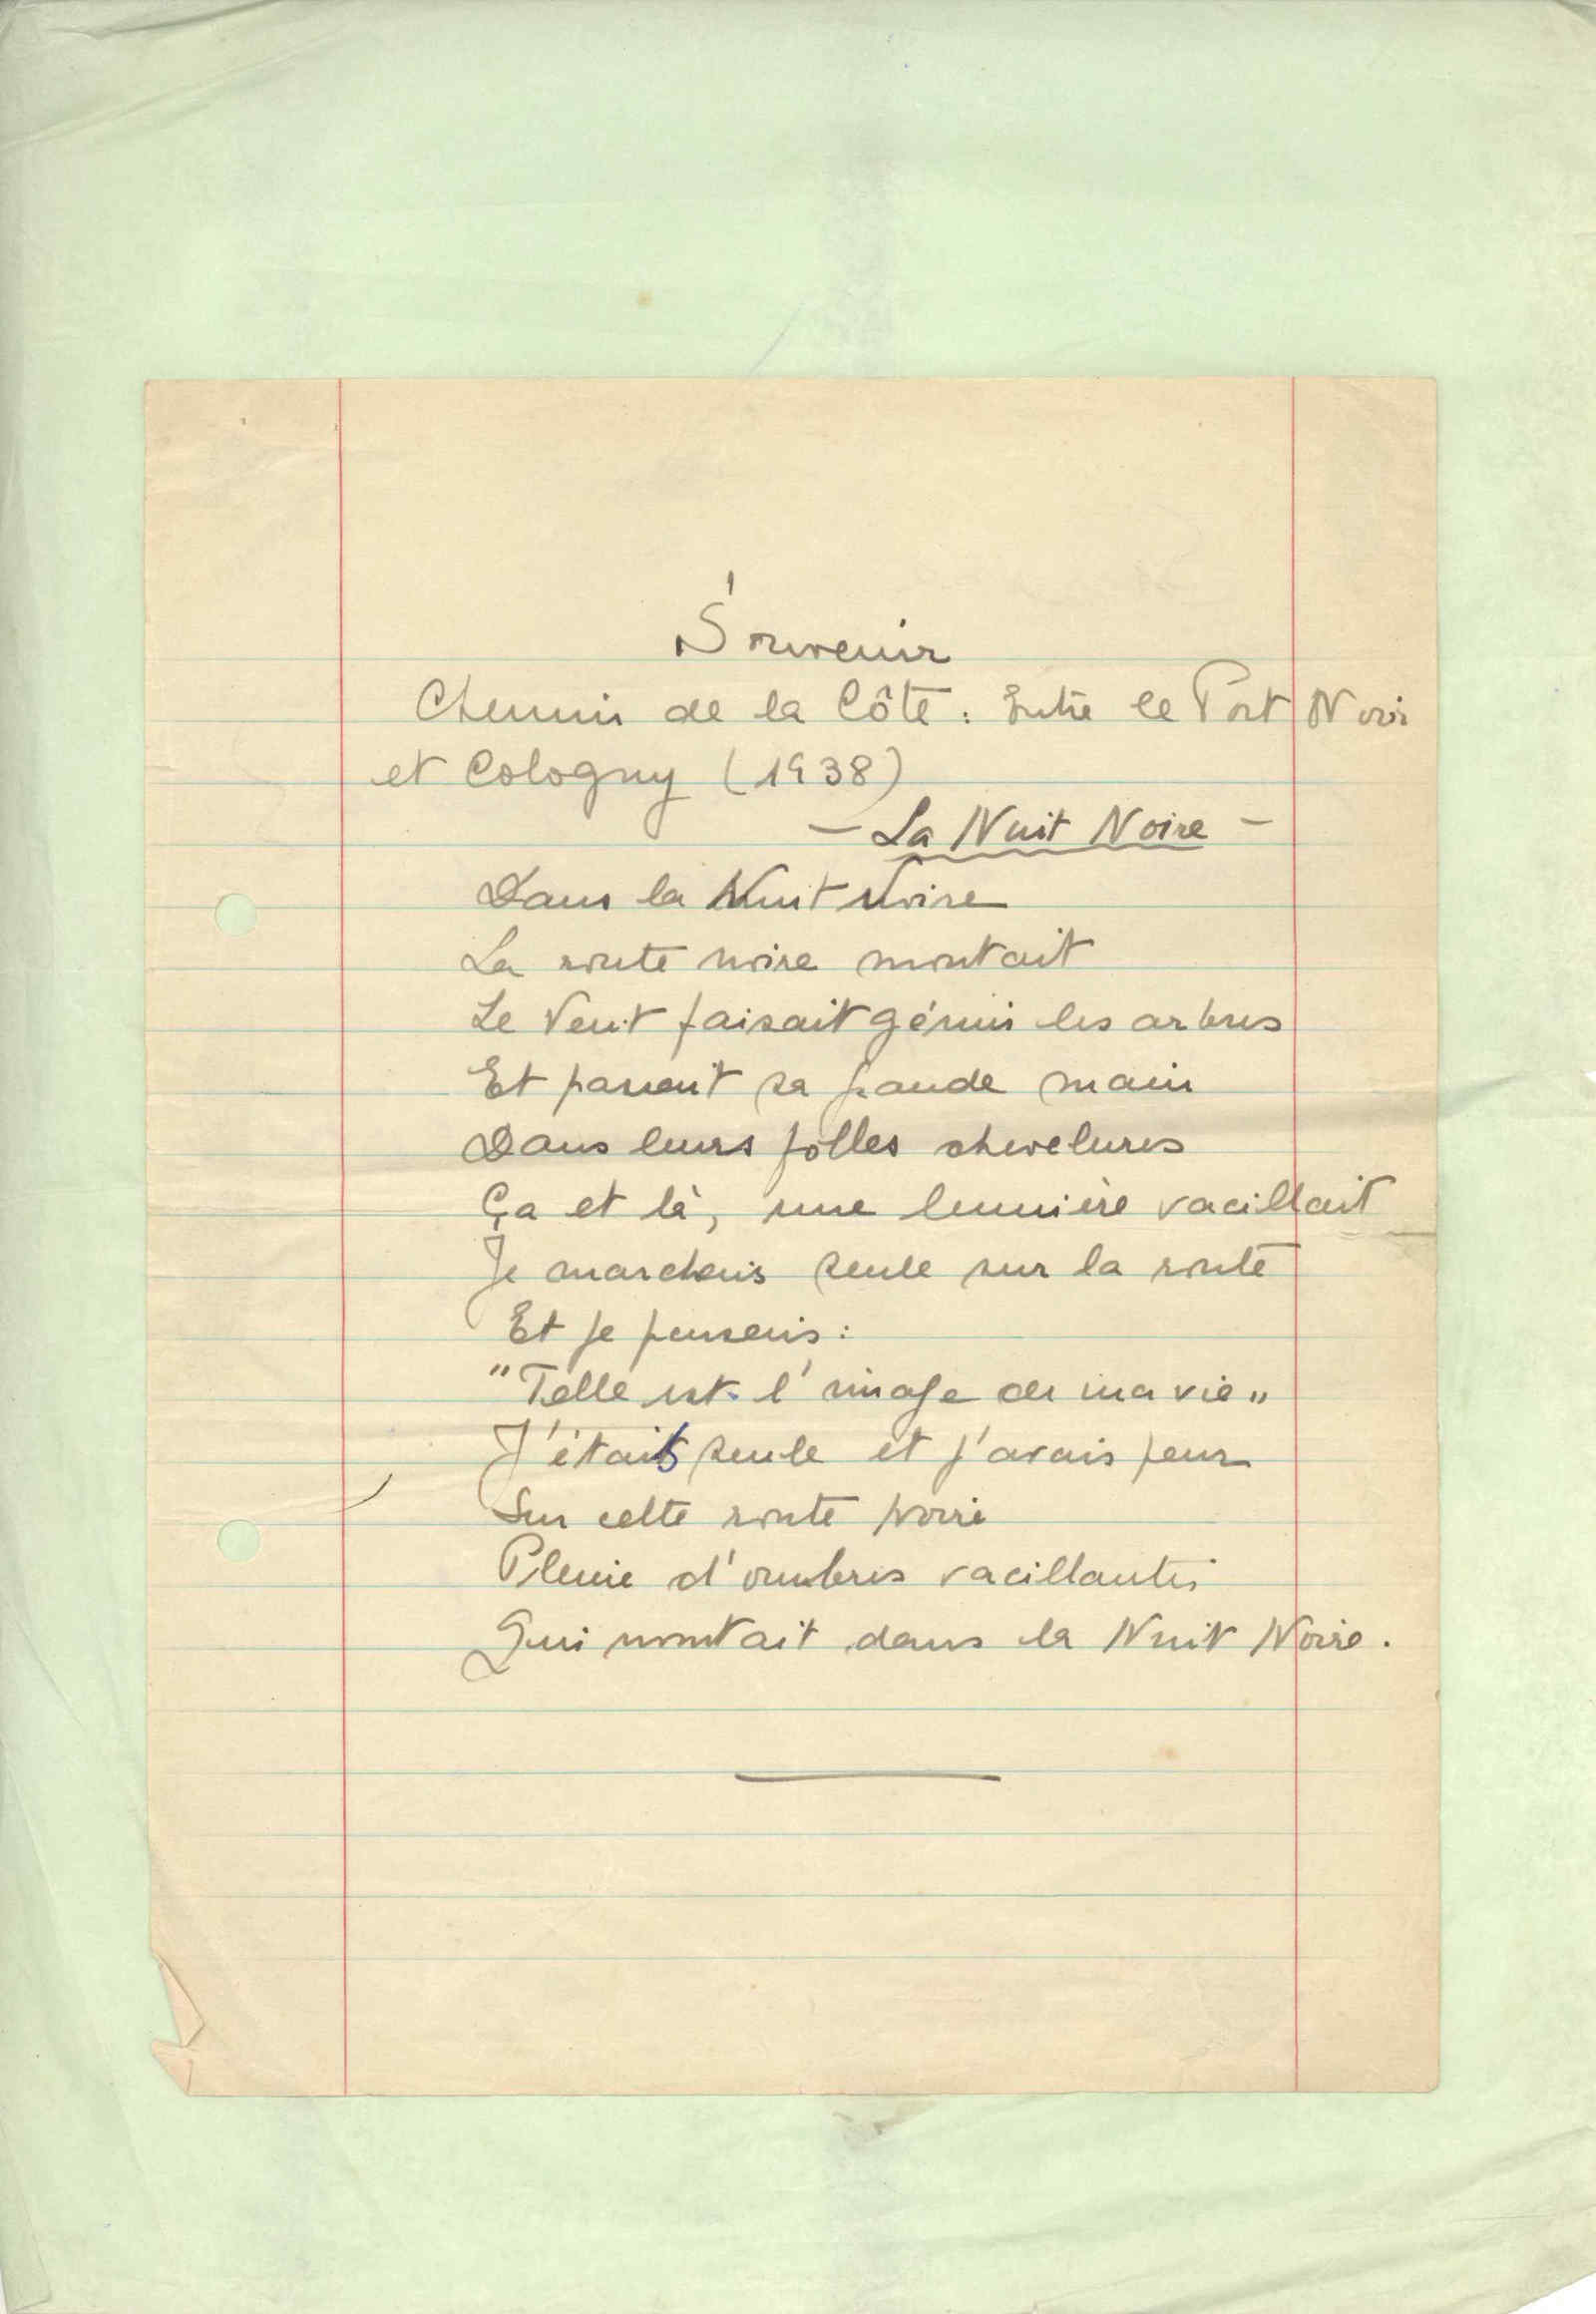 Souvenir
Chemin de la Côte : Entre le Port Noir
et Cologny (1938)
— La Nuit Noire —
Dans la Nuit Noire
La route noire montait
Le Vent faisait gémir les arbres
Et passait sa grande main
Dans leurs folles chevelures
Ça et là, une lumière vacillait
Je marchais seule sur la route
Et je pensais :
"Telle est l'image de ma vie"
J'étais seule et j'avais peur
Sur cette route noire
Pleine d'ombres vacillantes
Qui montait dans la Nuit Noire.